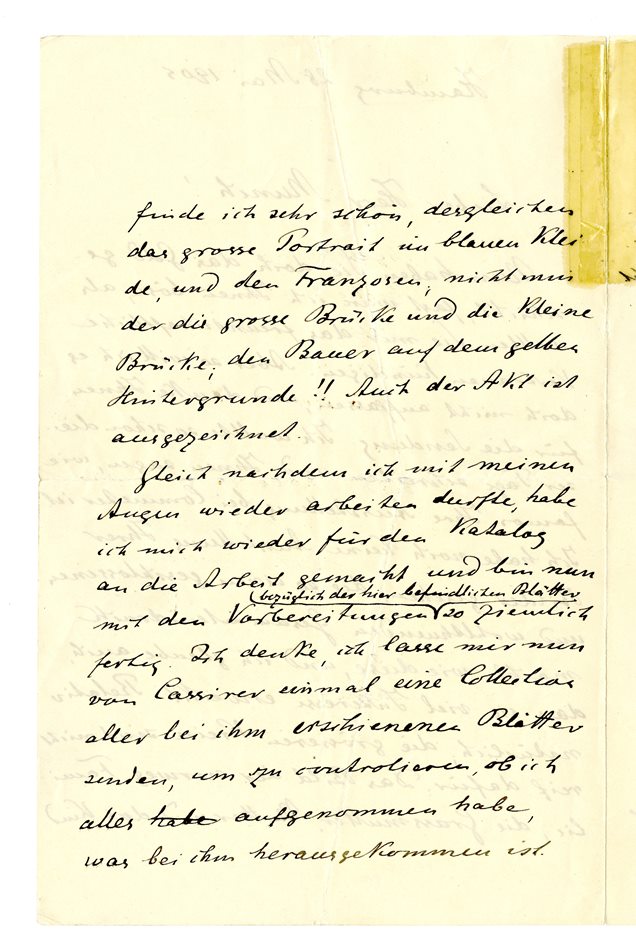 finde ich sehr schön, desgleichen
das grosse Portrait im blauen Klei
de, und den Franzosen, nicht min
der die grosse Brücke und die kleine
Brücke, den Bauer auf dem gelben
Hintergrunde!! Auch der Akt ist
ausgezeichnet.
Gleich nachdem ich mit meinen
Augen wieder arbeiten durfte, habe
ich mich wieder für den Katalog
an die Arbeit gemacht und bin nun
(bezüglich der hier befindlichen Blätter
mit den Vorbereitungen) so ziemlich
fertig. Ich denke, ich lasse mir nun
von Cassirer einmal eine Collection
aller bei ihm erschienenen Blätter
senden, um zu controlieren, ob ich
alles habe aufgenommen habe,
was bei ihm herausgekommen ist.